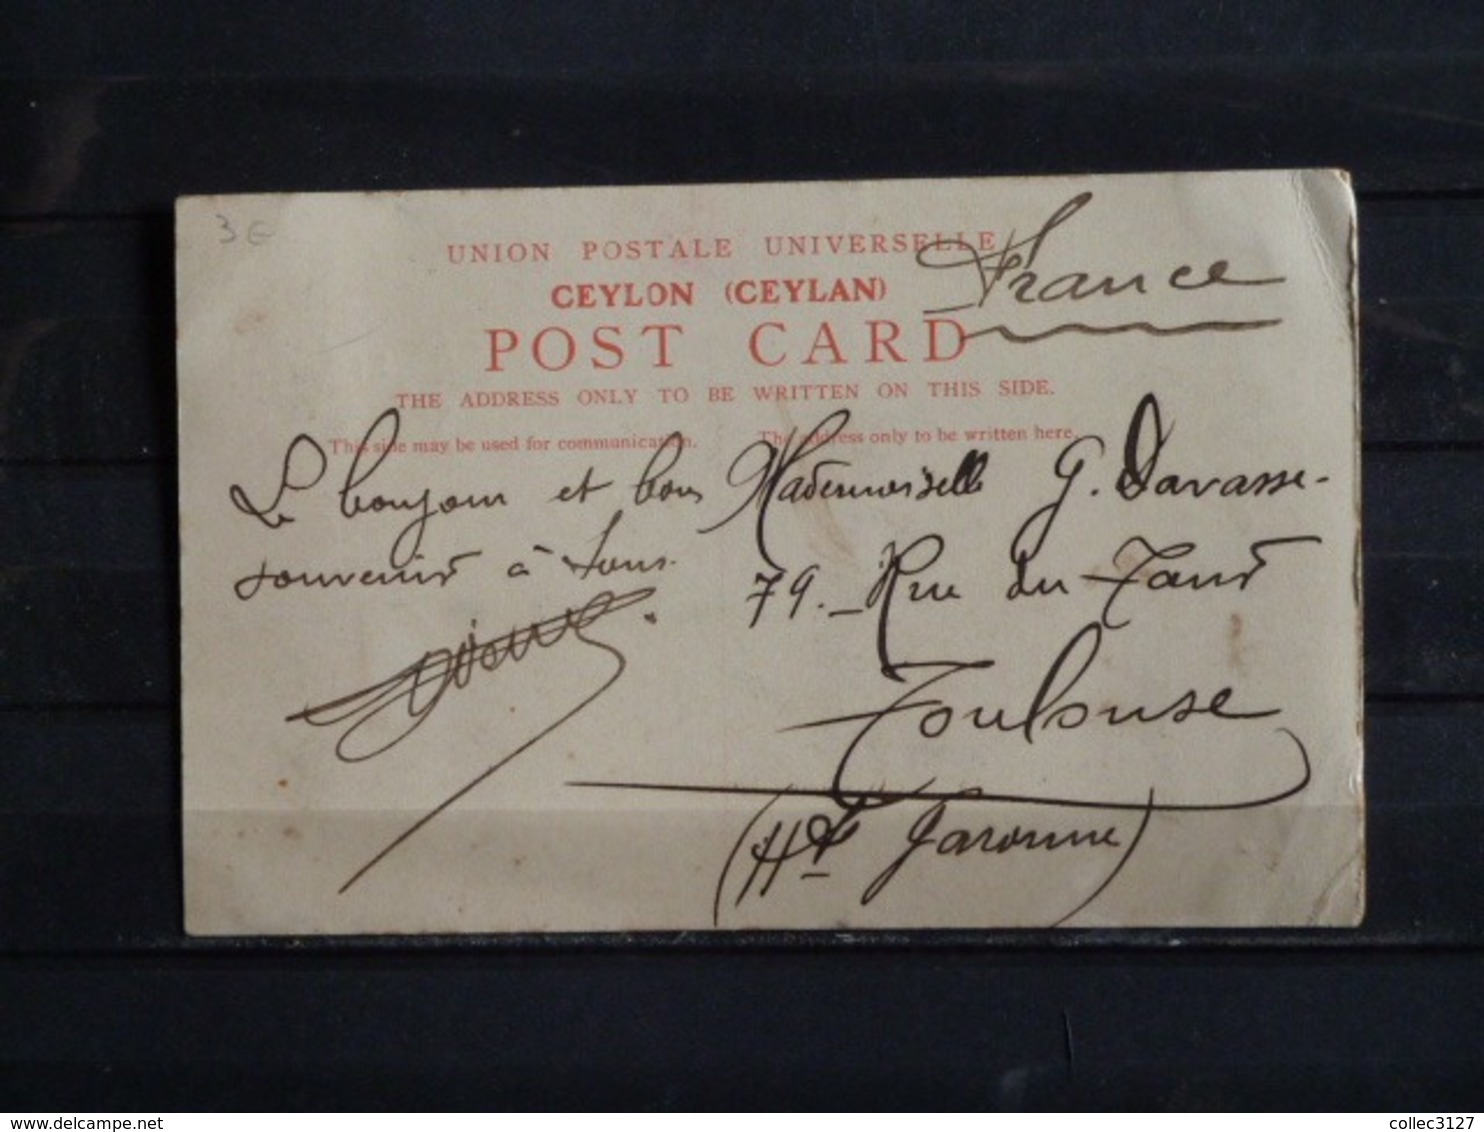 3 €
UNION POSTALE UNIVERSELLE
France
CEYLON (CEYLAN)
POST CARD
THE ADDRESS ONLY TO BE WRITTEN ON THIS SIDE.
This side may be used for communication.
The address only to be written here.
Le bonjour et bon
souvenir à tous.
Mademoiselle G. Davasse-
79.- Rue du Taur
Toulouse
(Hte Garonne)
collec3127